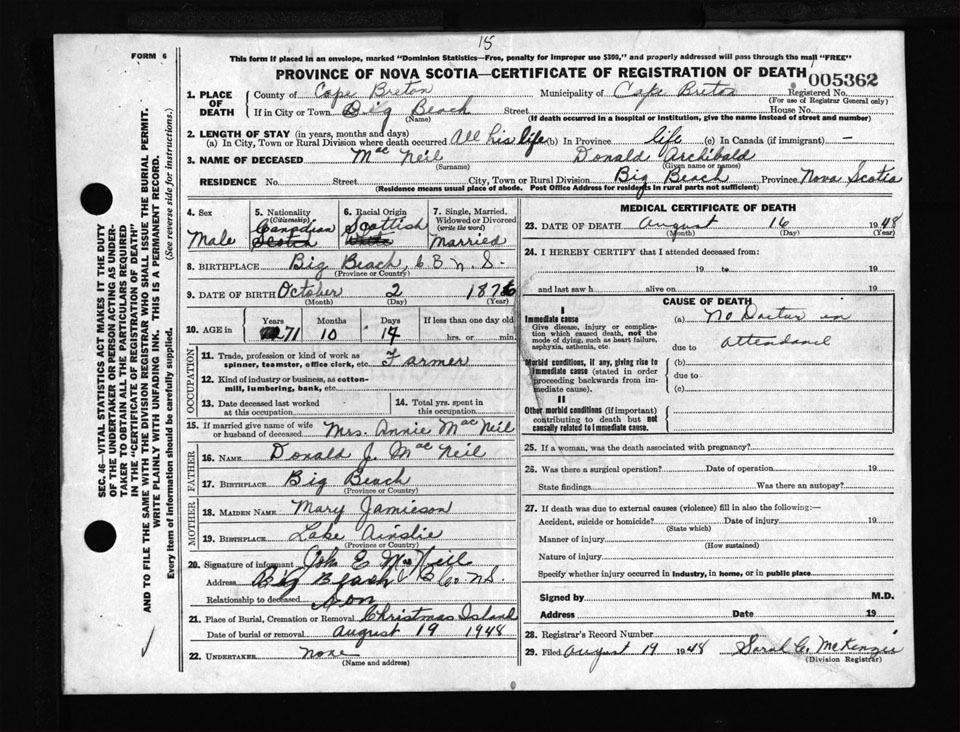 15
FORM 6
This form if placed in an envelope, marked "Dominion Statistics—Free, penalty for improper use $300," and properly addressed will pass through the mail "FREE"
PROVINCE OF NOVA SCOTIA—CERTIFICATE OF REGISTRATION OF DEATH 005362
SEC. 46—VITAL STATISTICS ACT MAKES IT THE DUTY
OF THE UNDERTAKER OR PERSON ACTING AS UNDER-
TAKER TO OBTAIN ALL THE PARTICULARS REQUIRED
IN THE "CERTIFICATE OF REGISTRATION OF DEATH"
AND TO FILE THE SAME WITH THE DIVISION REGISTRAR WHO SHALL ISSUE THE BURIAL PERMIT.
WRITE PLAINLY WITH UNFADING INK. THIS IS A PERMANENT RECORD.
Every item of information should be carefully supplied. (See reverse side for instructions.)
1. PLACE OF DEATH
County of Cape Breton Municipality of Cape Breton Registered No.
(For use of Registrar General only)
If in City or Town Big Beach Street House No.
(Name) (If death occurred in a hospital or institution, give the name instead of street and number)
2. LENGTH OF STAY (in years, months and days)
(a) In City, Town or Rural Division where death occurred All his life (b) In Province life (c) In Canada (if immigrant) —
3. NAME OF DECEASED Mac Neil Donald Archibald
(Surname) (Given name or names)
RESIDENCE No. Street City, Town or Rural Division Big Beach Province Nova Scotia
(Residence means usual place of abode. Post Office Address for residents in rural parts not sufficient)
4. Sex
Male
5. Nationality
(Citizenship)
Canadian
Scotch
6. Racial Origin
Scottish
7. Single, Married, Widowed or Divorced
(write the word)
Married
8. BIRTHPLACE Big Beach, C B N. S.
(Province or Country)
9. DATE OF BIRTH October 2 1876
(Month) (Day) (Year)
10. AGE in
Years Months Days If less than one day old
71 10 14 hrs. or min.
OCCUPATION
11. Trade, profession or kind of work as
spinner, teamster, office clerk, etc. Farmer
12. Kind of industry or business, as cotton-
mill, lumbering, bank, etc.
13. Date deceased last worked
at this occupation
14. Total yrs. spent in
this occupation
15. If married give name of wife
or husband of deceased Mrs. Annie Mac Neil
FATHER
16. NAME Donald J. Mac Neil
17. BIRTHPLACE Big Beach
(Province or Country)
MOTHER
18. MAIDEN NAME Mary Jamieson
19. BIRTHPLACE Lake Ainslie
(Province or Country)
20. Signature of informant E McNeil
Address Big Beach C B Co. N.S.
Relationship to deceased Son
21. Place of Burial, Cremation or Removal Christmas Island
Date of burial or removal August 19 1948
22. UNDERTAKER none
(Name and address)
MEDICAL CERTIFICATE OF DEATH
23. DATE OF DEATH August 16 1948
(Month) (Day) (Year)
24. I HEREBY CERTIFY that I attended deceased from:
19 to 19
and last saw h alive on 19
CAUSE OF DEATH
I
Immediate cause
Give disease, injury or complica-
tion which caused death, not the
mode of dying, such as heart failure,
asphyxia, asthenia, etc.
(a) No Doctor in
due to attendance
Morbid conditions, if any, giving rise to
immediate cause (stated in order
proceeding backwards from im-
mediate cause).
(b)
due to
(c)
II
Other morbid conditions (if important)
contributing to death but not
causally related to immediate cause.
25. If a woman, was the death associated with pregnancy?
26. Was there a surgical operation? Date of operation 19
State findings Was there an autopsy?
27. If death was due to external causes (violence) fill in also the following:—
Accident, suicide or homicide? Date of injury 19
(State which)
Manner of injury
(How sustained)
Nature of injury
Specify whether injury occurred in industry, in home, or in public place
Signed by M.D.
Address Date 19
28. Registrar's Record Number
29. Filed August 19 1948 Sarah C. McKenzie
(Division Registrar)